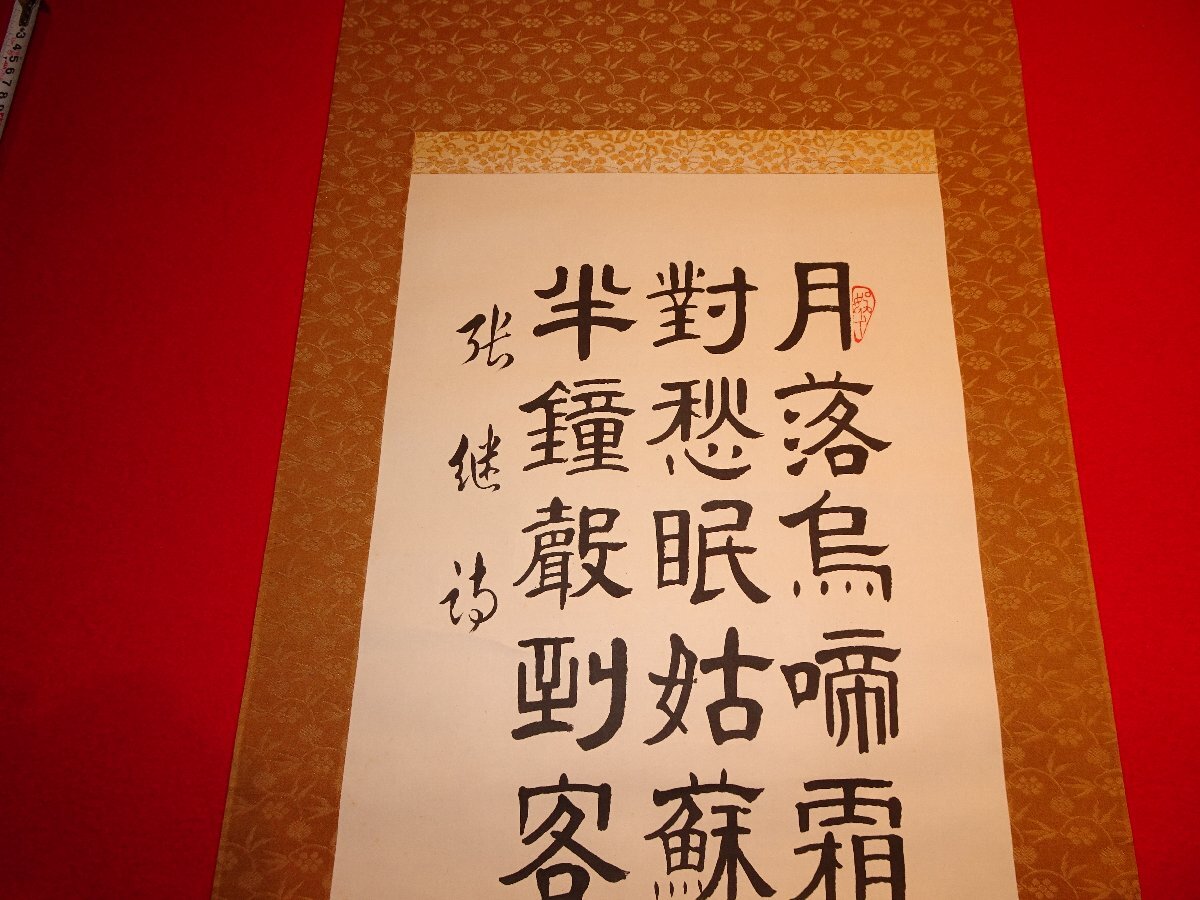 月落烏啼霜
對愁眠姑蘇
半鐘聲到客
张继诗
3 4 5 6 7 8 9